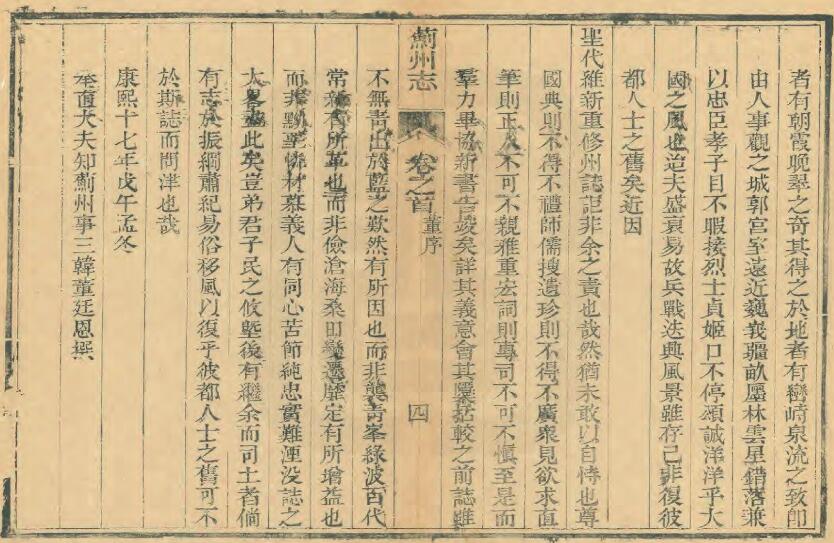 者有朝霞晚翠之奇其得之於地者有巒崎泉流之致即
由人事觀之城郭宮室遠近巍峩疆畝廛林雲星錯落兼
以忠臣孝子目不暇接烈士貞姬口不停頌誠洋洋乎大
國之風也迨夫盛衰易故兵戰迭興風景雖存已非復彼
都人士之舊矣近因
聖代維新重修州誌詎非余之責也哉然猶未敢以自恃也尊
國典則不得不禮師儒搜遺珍則不得不廣衆見欲求直
筆則正人不可不親雅重宏詞則專司不可不慎至是而
羣力畢協新書告竣矣詳其義意會其隱括較之前誌雖
薊州志
卷之首
董序
四
不無靑出於藍之歎然有所因也而非襲靑峯綠波百代
常新有所革也而非儉滄海桑田變遷靡定有所增益也
而非黷聖作材慕義人有同心苦節純忠實難湮没誌之
大畧盡此矣豈弟君子民之攸塈後有繼余而司土者倘
有志於振綱肅紀易俗移風以復乎彼都人士之舊可不
於斯誌而問津也哉
康熙十七年戊午孟冬
奉直大夫知薊州事三韓董廷恩撰